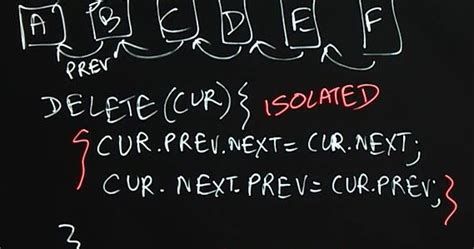 A B C D E F
PREV
DELETE(CUR){ ISOLATED
{ CUR.PREV.NEXT = CUR.NEXT;
CUR. NEXT. PREV = CUR.PREV; }
}